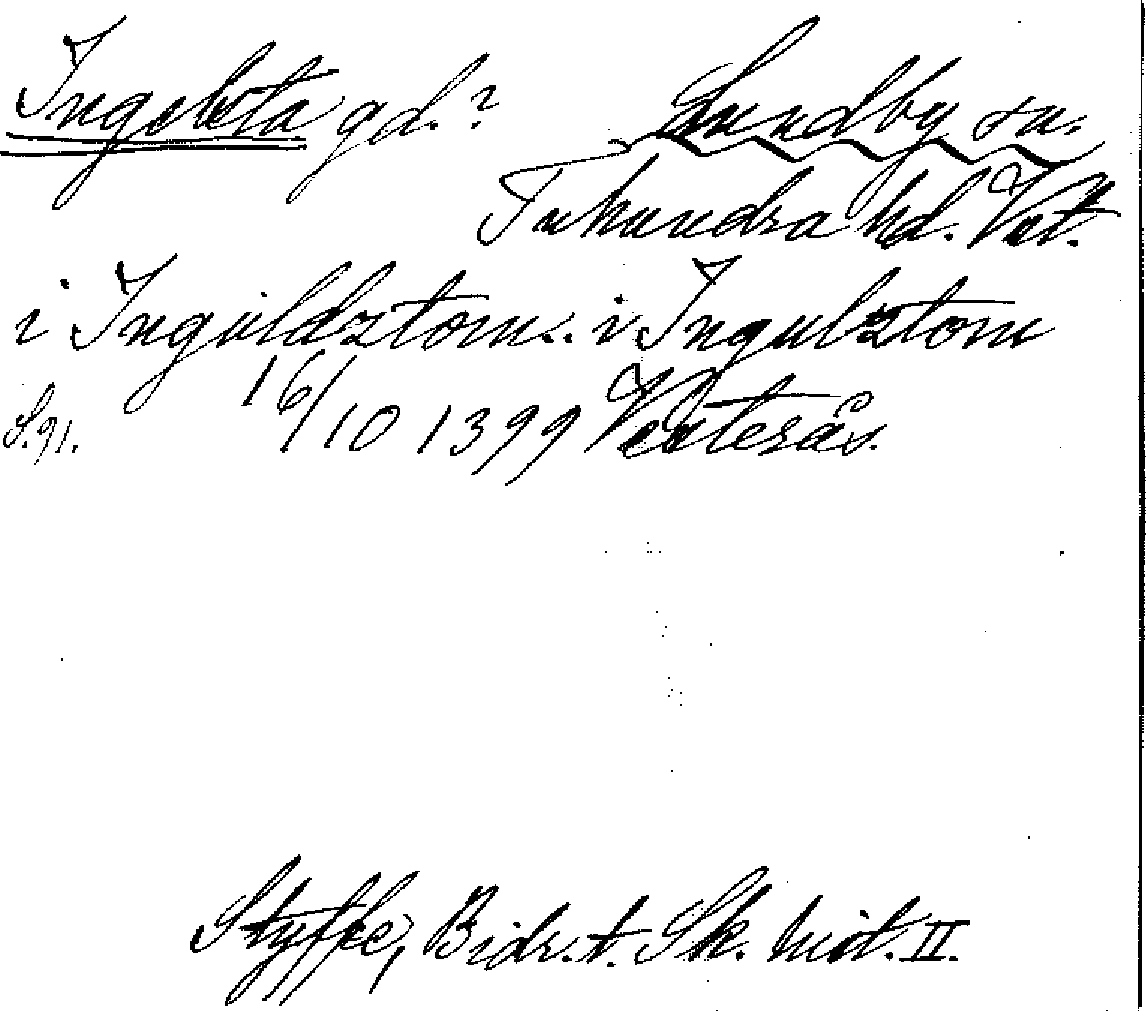 Ingelsta gd.? Lundby sn.
Tuhundra hd. Vstm.
i Inguldztom.. i Ingulztom
S. 91. 16/10 1399 Västerås.
Styffe, Bidr. t. Sk. hist. II.